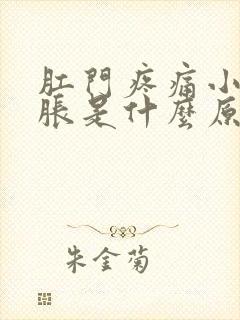 肛門疼痛小
脹是什麼原
朱金菊